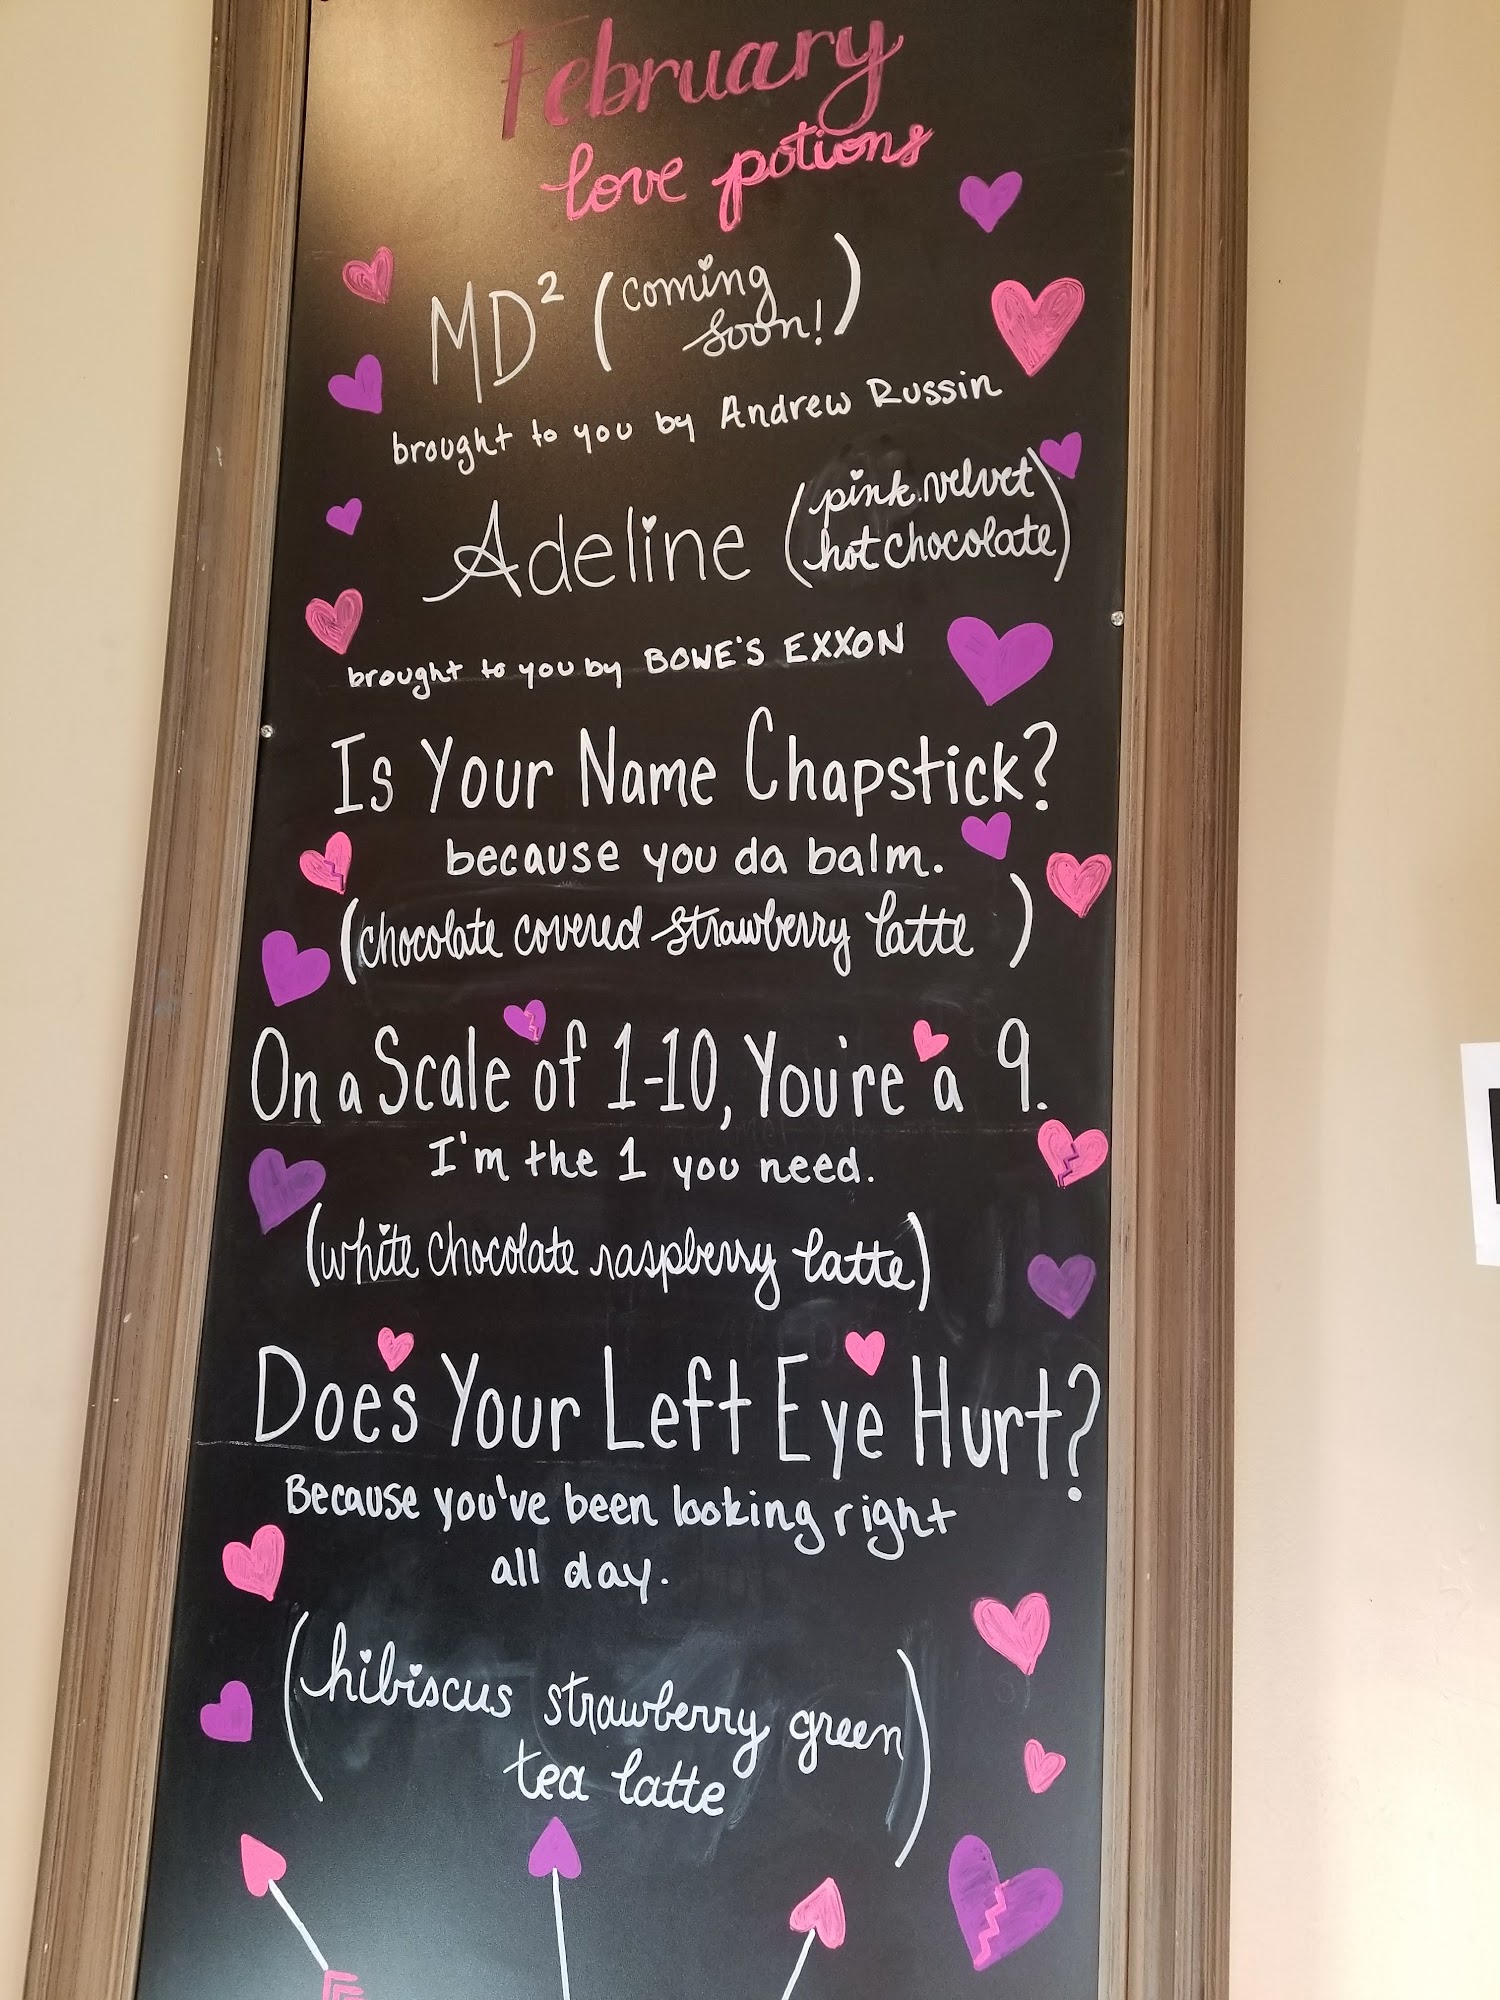 February
love potions
MD² (coming
soon!)
brought to you by Andrew Russin
Adeline (pink velvet
hot chocolate)
brought to you by BOWE'S EXXON
Is Your Name Chapstick?
because you da balm.
(chocolate covered strawberry latte)
On a Scale of 1-10, You're a 9.
I'm the 1 you need.
(white chocolate raspberry latte)
Does Your Left Eye Hurt?
Because you've been looking right
all day.
(hibiscus strawberry green
tea latte)